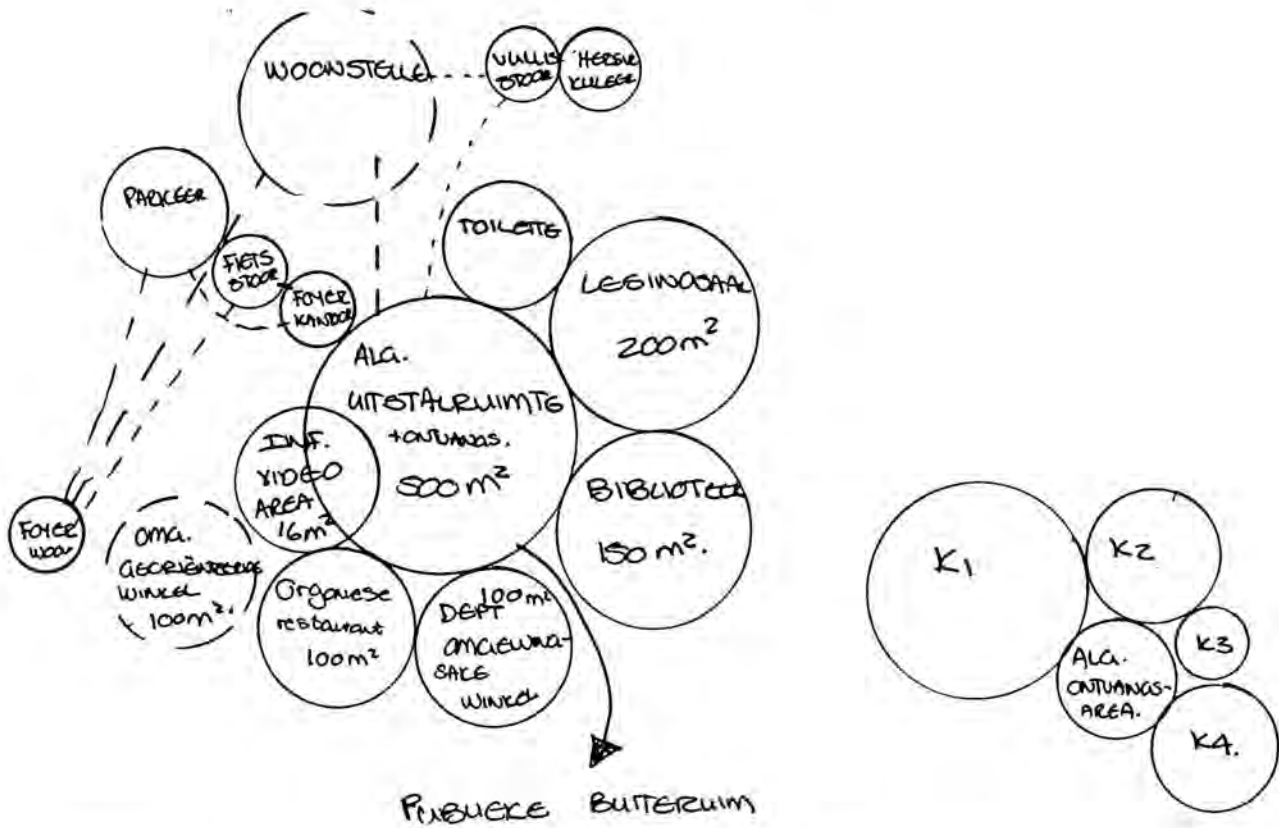 WOONSTELLE
VULLIS
STOOR
HERSIR
KULEER
PARKEER
FIETS
STOOR
FOYER
KANTOOR
TOILETTE
LESINGSAAL
200m²
ALG.
UITSTALRUIMTE
+ONTVANGS.
500m²
INF.
VIDEO
AREA.
16m²
BIBLIOTEEK
150m².
FOYER
WOON
OMG.
GEORIËNTEERDE
WINKEL
100m².
Organiese
restaurant
100m²
100m²
DEPT
OMGEWING-
SAKE
WINKEL
PUBLIEKE BUITERUIM
K1
K2
K3
ALG.
ONTVANGS-
AREA.
K4.